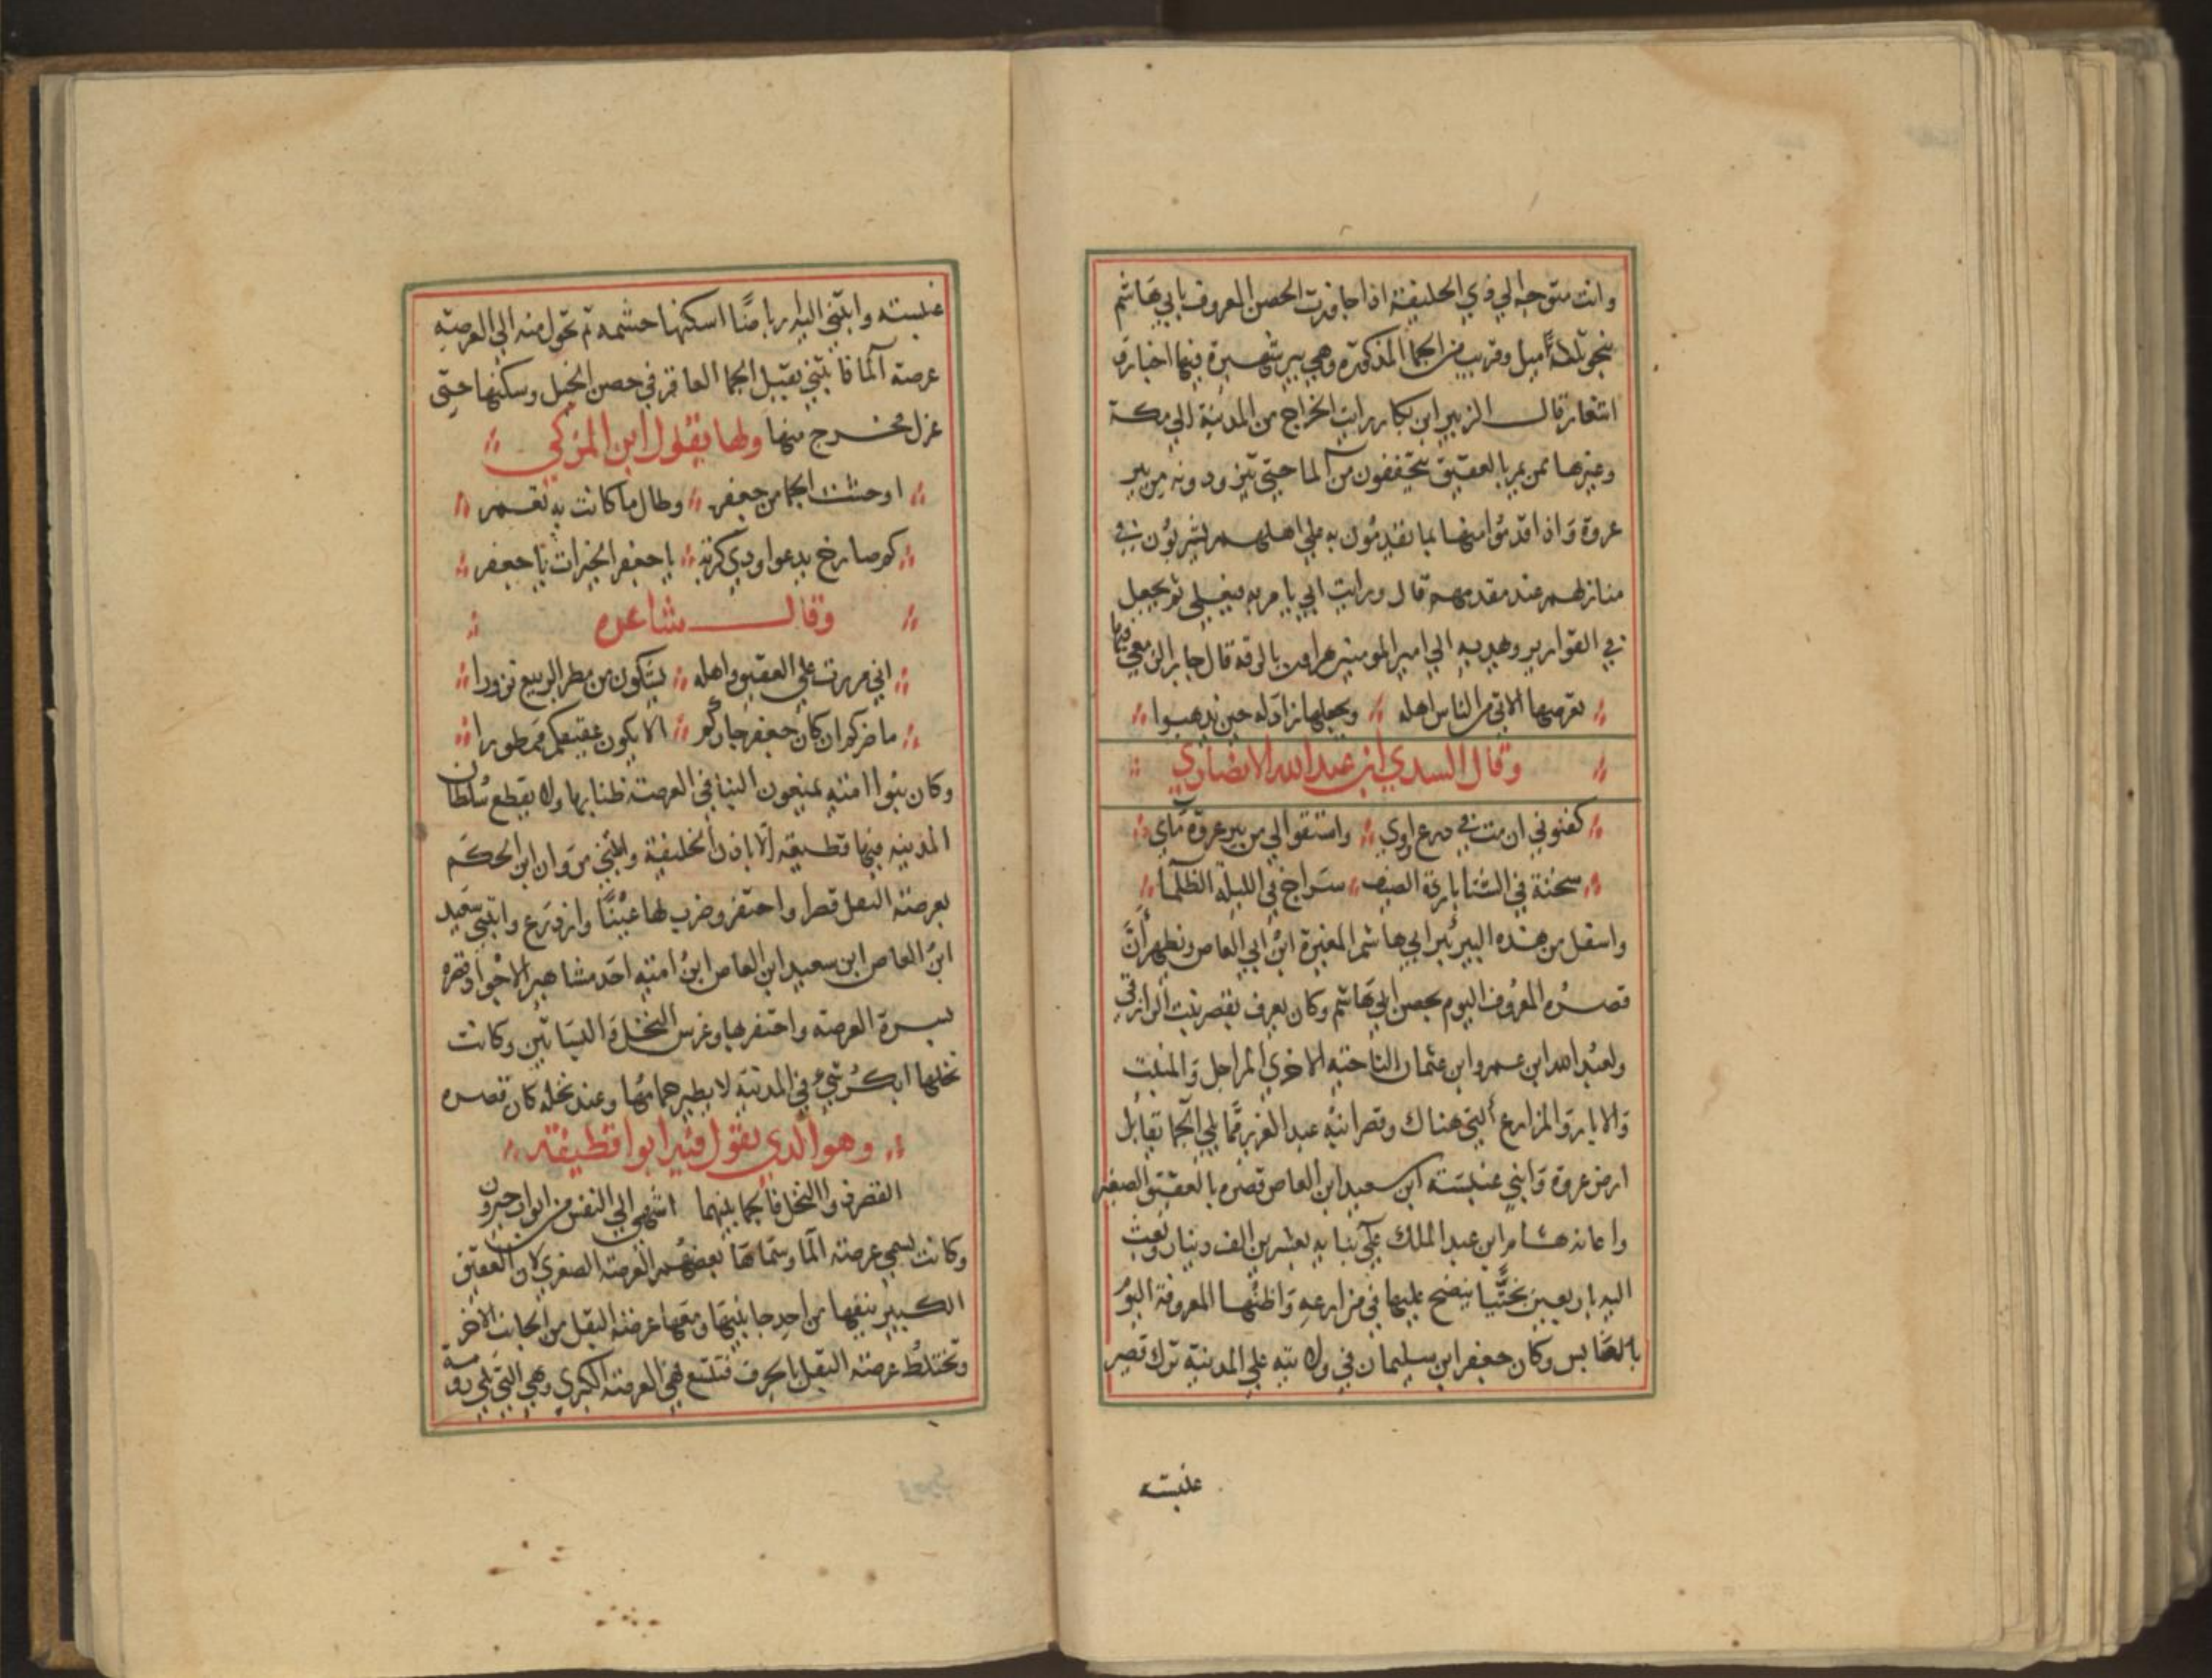 وانت متوجه الي ذي الحليفة اذا جاوزت الحصن المعروف بابي هاشم
بنحو ثلثة اميل وقريب من الجما المذكورة وهي بير شهيرة فيها اخبار و
اشعار قال الزبير ابن بكار رايت الخراج من المدينة الي مكة
وغيرها ممن يمر بالعقيق يتخففون من الما حتي يتزودونه من بير
عروة واذا قدموا منها بما يقدمون به علي اهلهم لشربون في
منازلهم عند مقدمهم قال ورايت ابي يامر به فيغلي ثم يجعل
في القوارير ويهديه الي امير المومنين هرون بالرقة قال جابر الربعي فيها
يعرضها الاتي من الناس اهله ويجعلها زاد له حين يذهبوا
وقال السدي ابن عبد الله الانصاري
كفنوني ان مت في درع اروي واستقوا لي من بير عروة ماي
سخنة في الشتا باردة الصيف سراج في الليله الظلما
واسفل من هذه البير بير ابي هاشم المغيرة ابن ابي العاص ويظهر ان
قصره المعروف اليوم بحصن ابي هاشم وكان يعرف بقصر بنت المرازقي
ولعبد الله ابن عمرو ابن عثمان الناحيه الاخري المراجل والمنبت
والابار والمزارع التي هناك وقصر ابنه عبد العزيز مما يلي الجما تقابل
ارض عروة وابني عنبسة ابن سعيد ابن العاص قصره بالعقيق الصغير
واعانه هشام ابن عبد الملك علي بنايه بعشرين الف دينار وبعث
اليه باربعين بختيا ينضح عليها في مزارعه واظنها المعروفة اليوم
بالعابس وكان جعفر ابن سليمان في ولايته علي المدينة ترك قصر
عنبسة
عنبسة وابتني اليه رباضا اسكنها حشمه ثم تحول منه الي العرصة
عرصة الما فابتني بقبل الجما العاقر في حصن الخيل وسكنها حتي
عزل مخرج منها ولها يقول ابن المزكي
اوحشت الجما من جعفر وطال ما كانت به تعمر
كم صارخ يدعوا وذي كربة يا جعفر الخيرات يا جعفر
وقال شاعره
اني مررت علي العقيق واهله يشكون من مطر الربيع نزورا
ما ضركم ان كان جعفر جاركم الا يكون عقيقكم ممطورا
وكان بنوا اميه يمنعون البنا في العرصة ظنا بها ولا يقطع سلطان
المدينه فيها قطيعة الا باذن الخليفة وابتني مروان ابن الحكم
بعرصة البقل قصرا واحتفر وضرب لها عينا وازدرع وابتني سعيد
ابن العاص ابن سعيد ابن العاص ابن اميه احد مشاهير الاجواد قصره
بسرة العرصه واحتفر بها وغرس النخل والبساتين وكانت
نخلها ابكر شي في المدينة لا يطير حمامها وعند نخله كان قصره
وهو الذي يقول فيه ابوا قطيفة
القصر والنخل فالجما بينهما اشهي الي النفس من ابواب جيرون
وكانت تسمي عرصة الما وسماها بعضهم العرصة الصغري لان العقيق
الكبير يتبعها من احد جانبيها ومعها عرصة البقل من الجانب الاخر
وتختلط عرصة البقل بالجرف فتتسع هي العرصة الكبري وهي التي تلي رومة